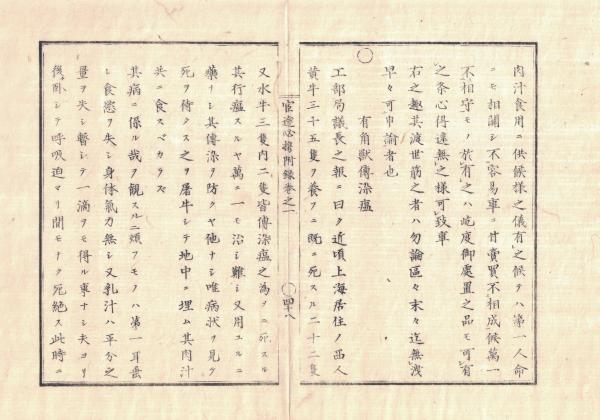 肉汁食用ニ供候様之儀有之候テハ第一人命
ニモ相関シ不容易事ニ付賣買不相成候萬一
不相守モノ於有之ハ屹度御處置之品モ可有
之条心得違無之様可致事
右之趣其渡世筋之者ハ勿論區々末々迄無洩
早々可申諭者也
○
有角獣傳染瘟
工部局議長之報ニ曰ク近頃上海居住ノ西人
黄牛三十五隻ヲ養フニ既ニ死スル二十二隻
官途必携附録巻之一
○四十八
又水牛三隻内二隻皆傳染瘟之為メニ死スル
其行瘟スルヤ萬ニ一モ治シ難シ又用ユルニ
藥ナシ其傳染ヲ防クヤ他ナシ唯病状ヲ見グ
死ヲ待タス之ヲ屠牛シテ地中ニ埋ム其肉汁
共ニ食スベカラズ
其病ニ係ル哉ヲ観スルニ煩フモノハ第一耳垂
シ食慾ヲ失シ身体氣力無シ又乳汁ハ平分之
量ヲ失シ暫シテ一滴ヲモ得ル事ナシ夫ヨリ
後卧シテ呼吸迫マリ間モナク死絶ス此時ニ